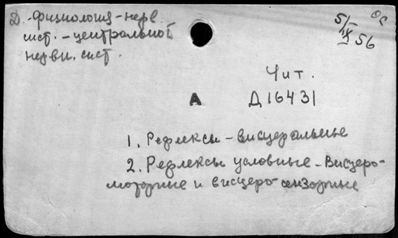 Д.-физиология-нерв.
сист.-центральной
нервн. сист.
5/IX 56
Чит.
А Д16431
1. Рефлексы-висцеральные
2. Рефлексы условные-Висцеро-
моторные и висцеро-сензорные